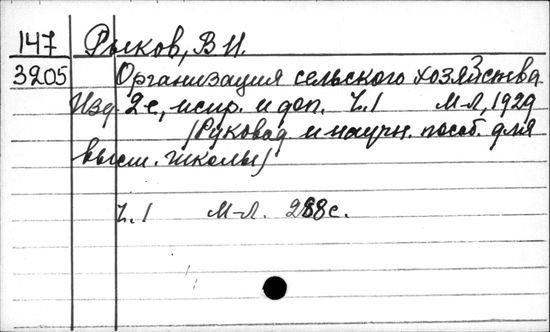 147 Рыков, В И.
3205 Организация сельского хозяйства.
Изд. 2е, испр. и доп. Ч.1 М-Л, 1929
/Руковод и научн. пособ. для
высш. школы/
Ч.1 М-Л. 288с.